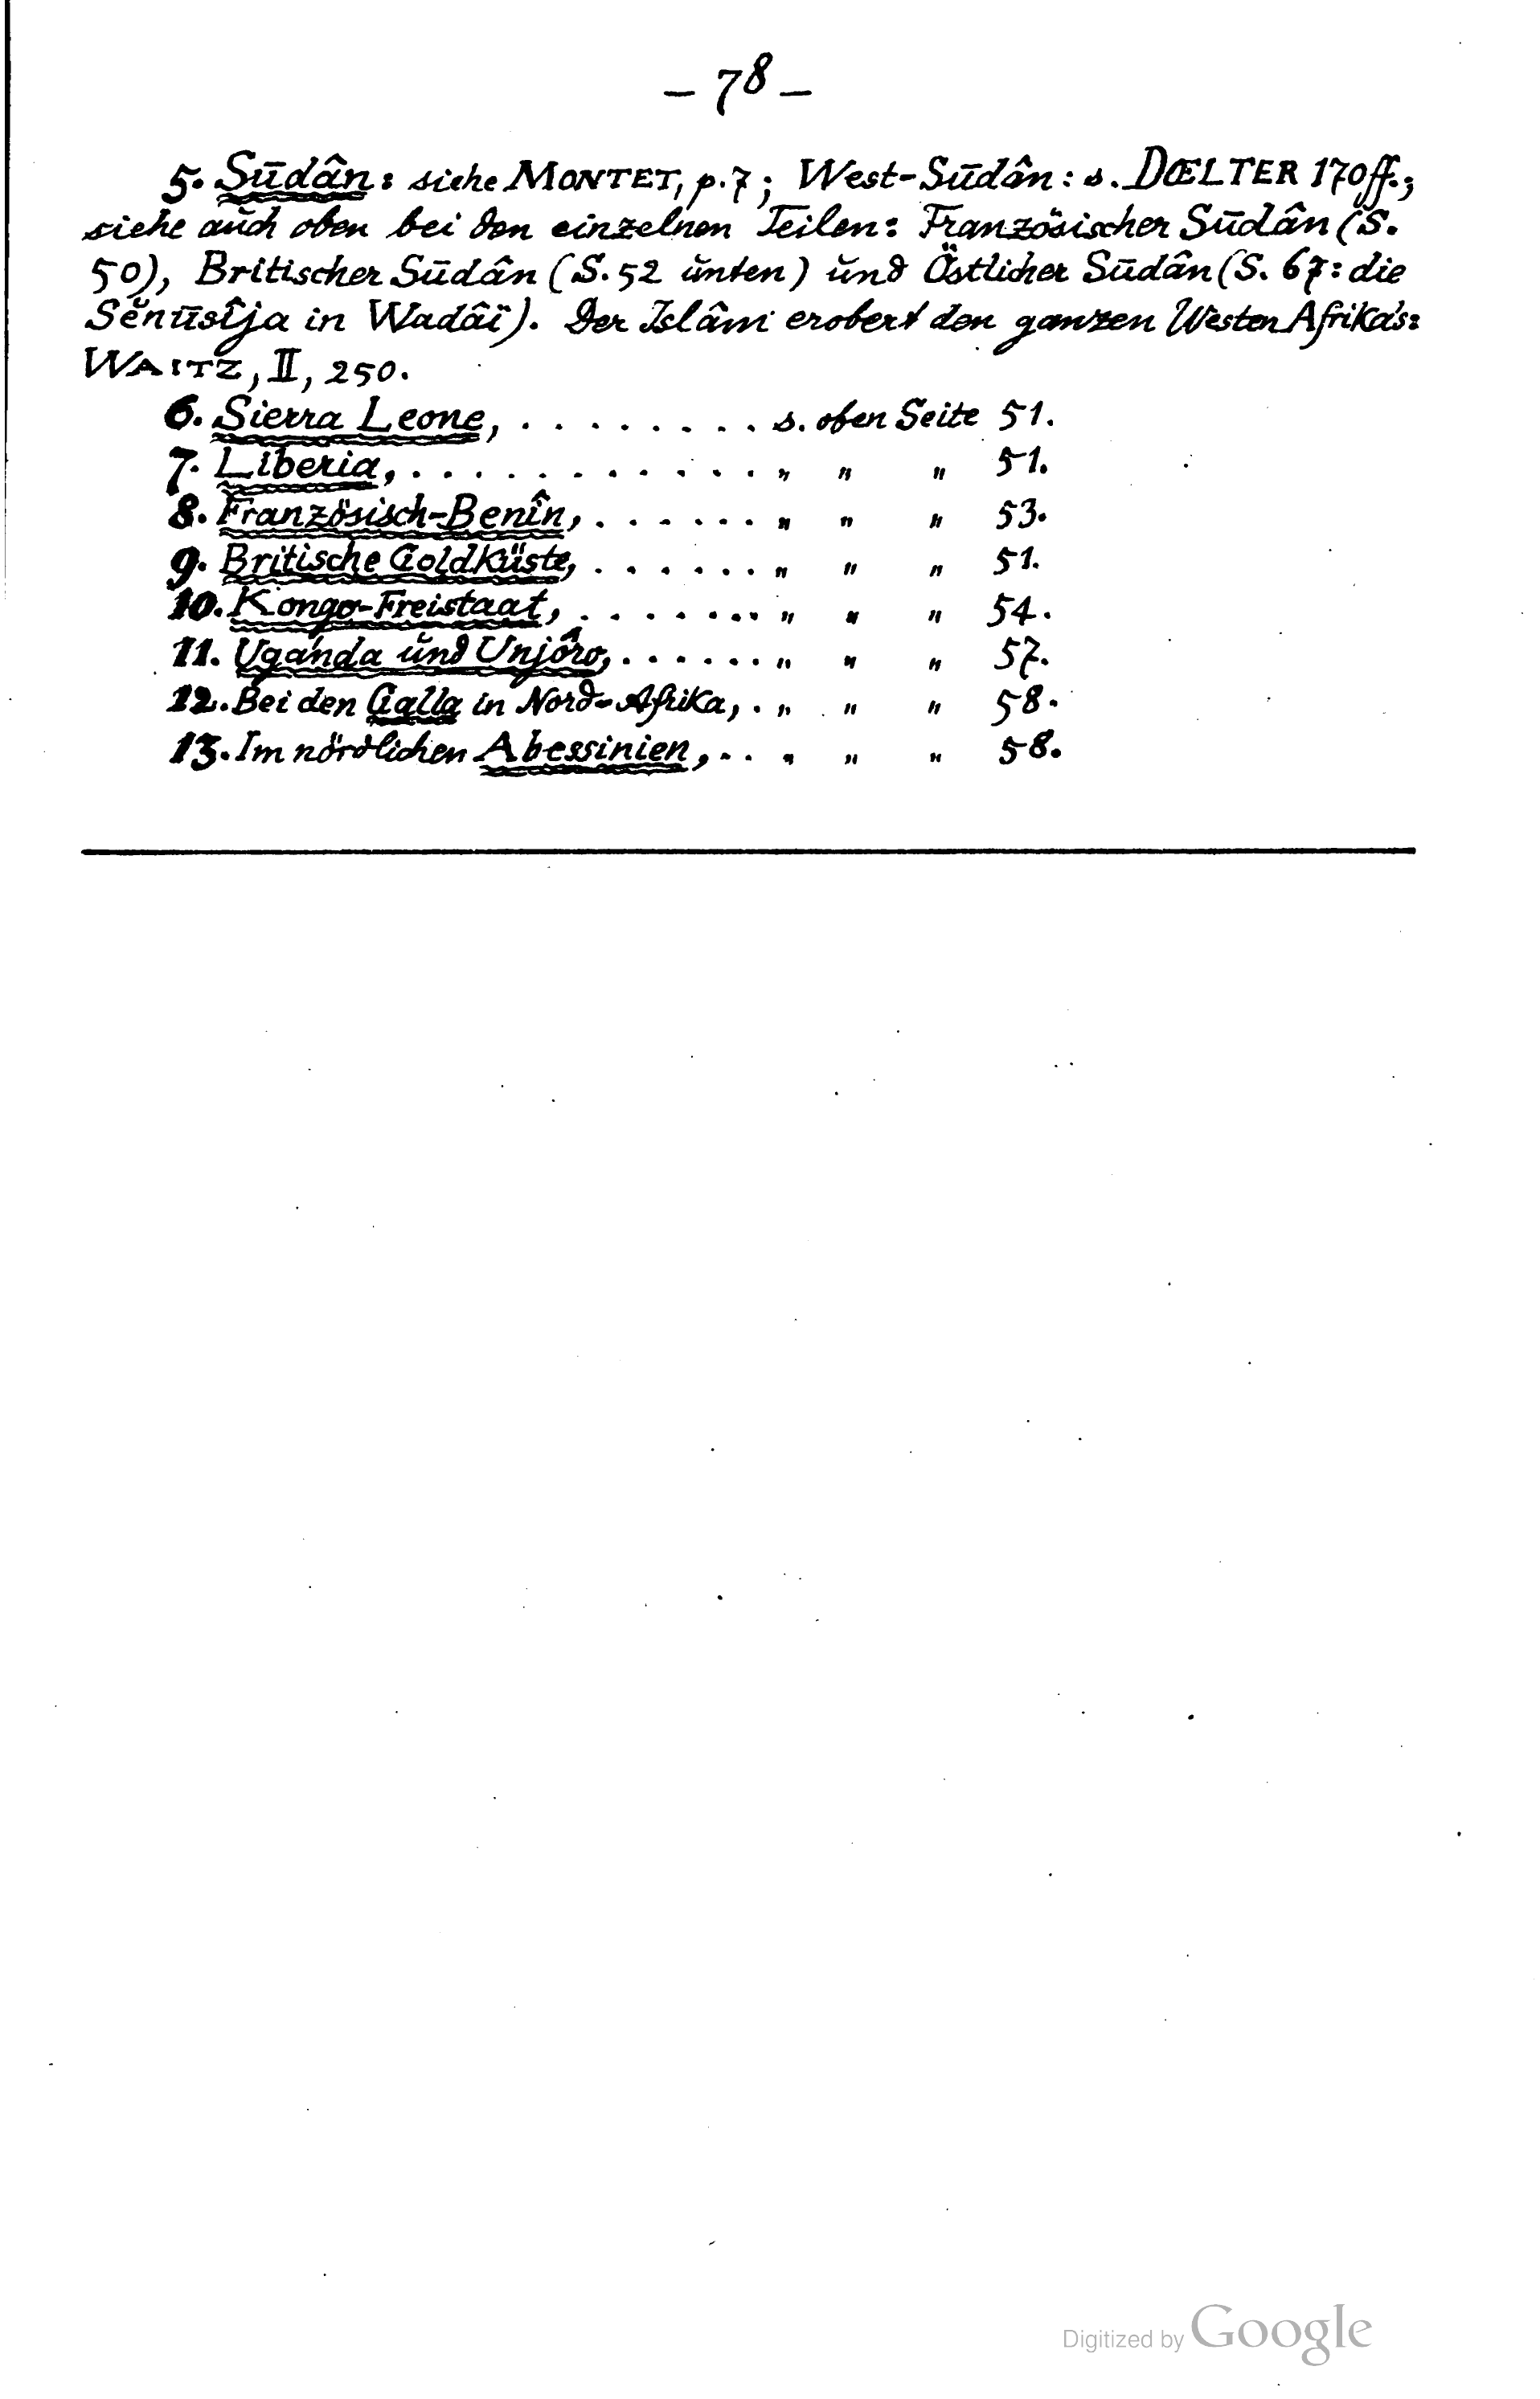 – 78 –
5. Sūdân: siehe MONTET, p. 7; West-Sūdân: s. DŒLTER 170ff.;
siehe aŭch oben bei den einzelnen Teilen: Französischer Sūdân (S.
50), Britischer Sūdân (S. 52 ŭnten) ŭnd Östlicher Sūdân (S. 67: die
Sĕnūsîja in Wadâï). Der Islâm erobert den ganzen Westen Afrika's:
WAITZ, II, 250.
6. Sierra Leone, . . . . . . . . s. oben Seite 51.
7. Liberia, . . . . . . . . . . . „ „ „ 51.
8. Französisch-Benîn, . . . . . . „ „ „ 53.
9. Britische Goldküste, . . . . . . „ „ „ 51.
10. Kongo-Freistaat, . . . . . . . „ „ „ 54.
11. Uganda ŭnd Unjôro, . . . . . . „ „ „ 57.
12. Bei den Galla in Nord-Afrika, . „ „ „ 58.
13. Im nördlichen Abessinien, . . . „ „ „ 58.
Digitized by Google